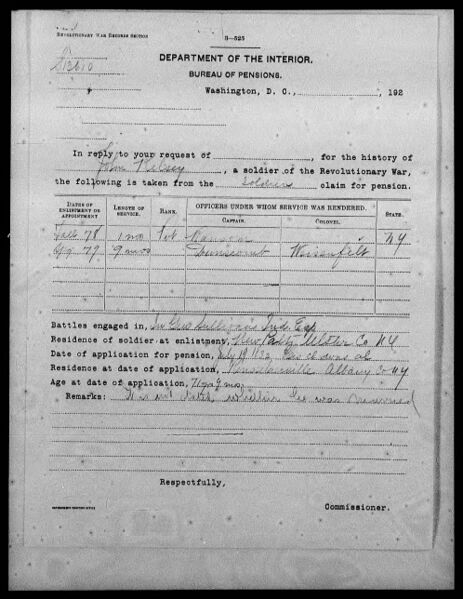 REVOLUTIONARY WAR RECORDS SECTION
3—525
S13610
DEPARTMENT OF THE INTERIOR,
BUREAU OF PENSIONS.
Washington, D. C., 192
In reply to your request of , for the history of
John , a soldier of the Revolutionary War,
the following is taken from the soldiers claim for pension.
DATES OF ENLISTMENT OR APPOINTMENT
LENGTH OF SERVICE.
RANK.
OFFICERS UNDER WHOM SERVICE WAS RENDERED.
CAPTAIN.
COLONEL.
STATE.
Fall 78 1 mo Pvt NY
79 9 mos Dunscomb Weisenfelt
Battles engaged in, In Gen Sullivan's Ind. Exp
Residence of soldier at enlistment, New Paltz Ulster Co NY
Date of application for pension, July 19 1832 His claim was al
Residence at date of application, Rensselaerville Albany Co NY
Age at date of application, 71 yrs 9 mos
Remarks: It is not stated whether he was married
Respectfully,
Commissioner.